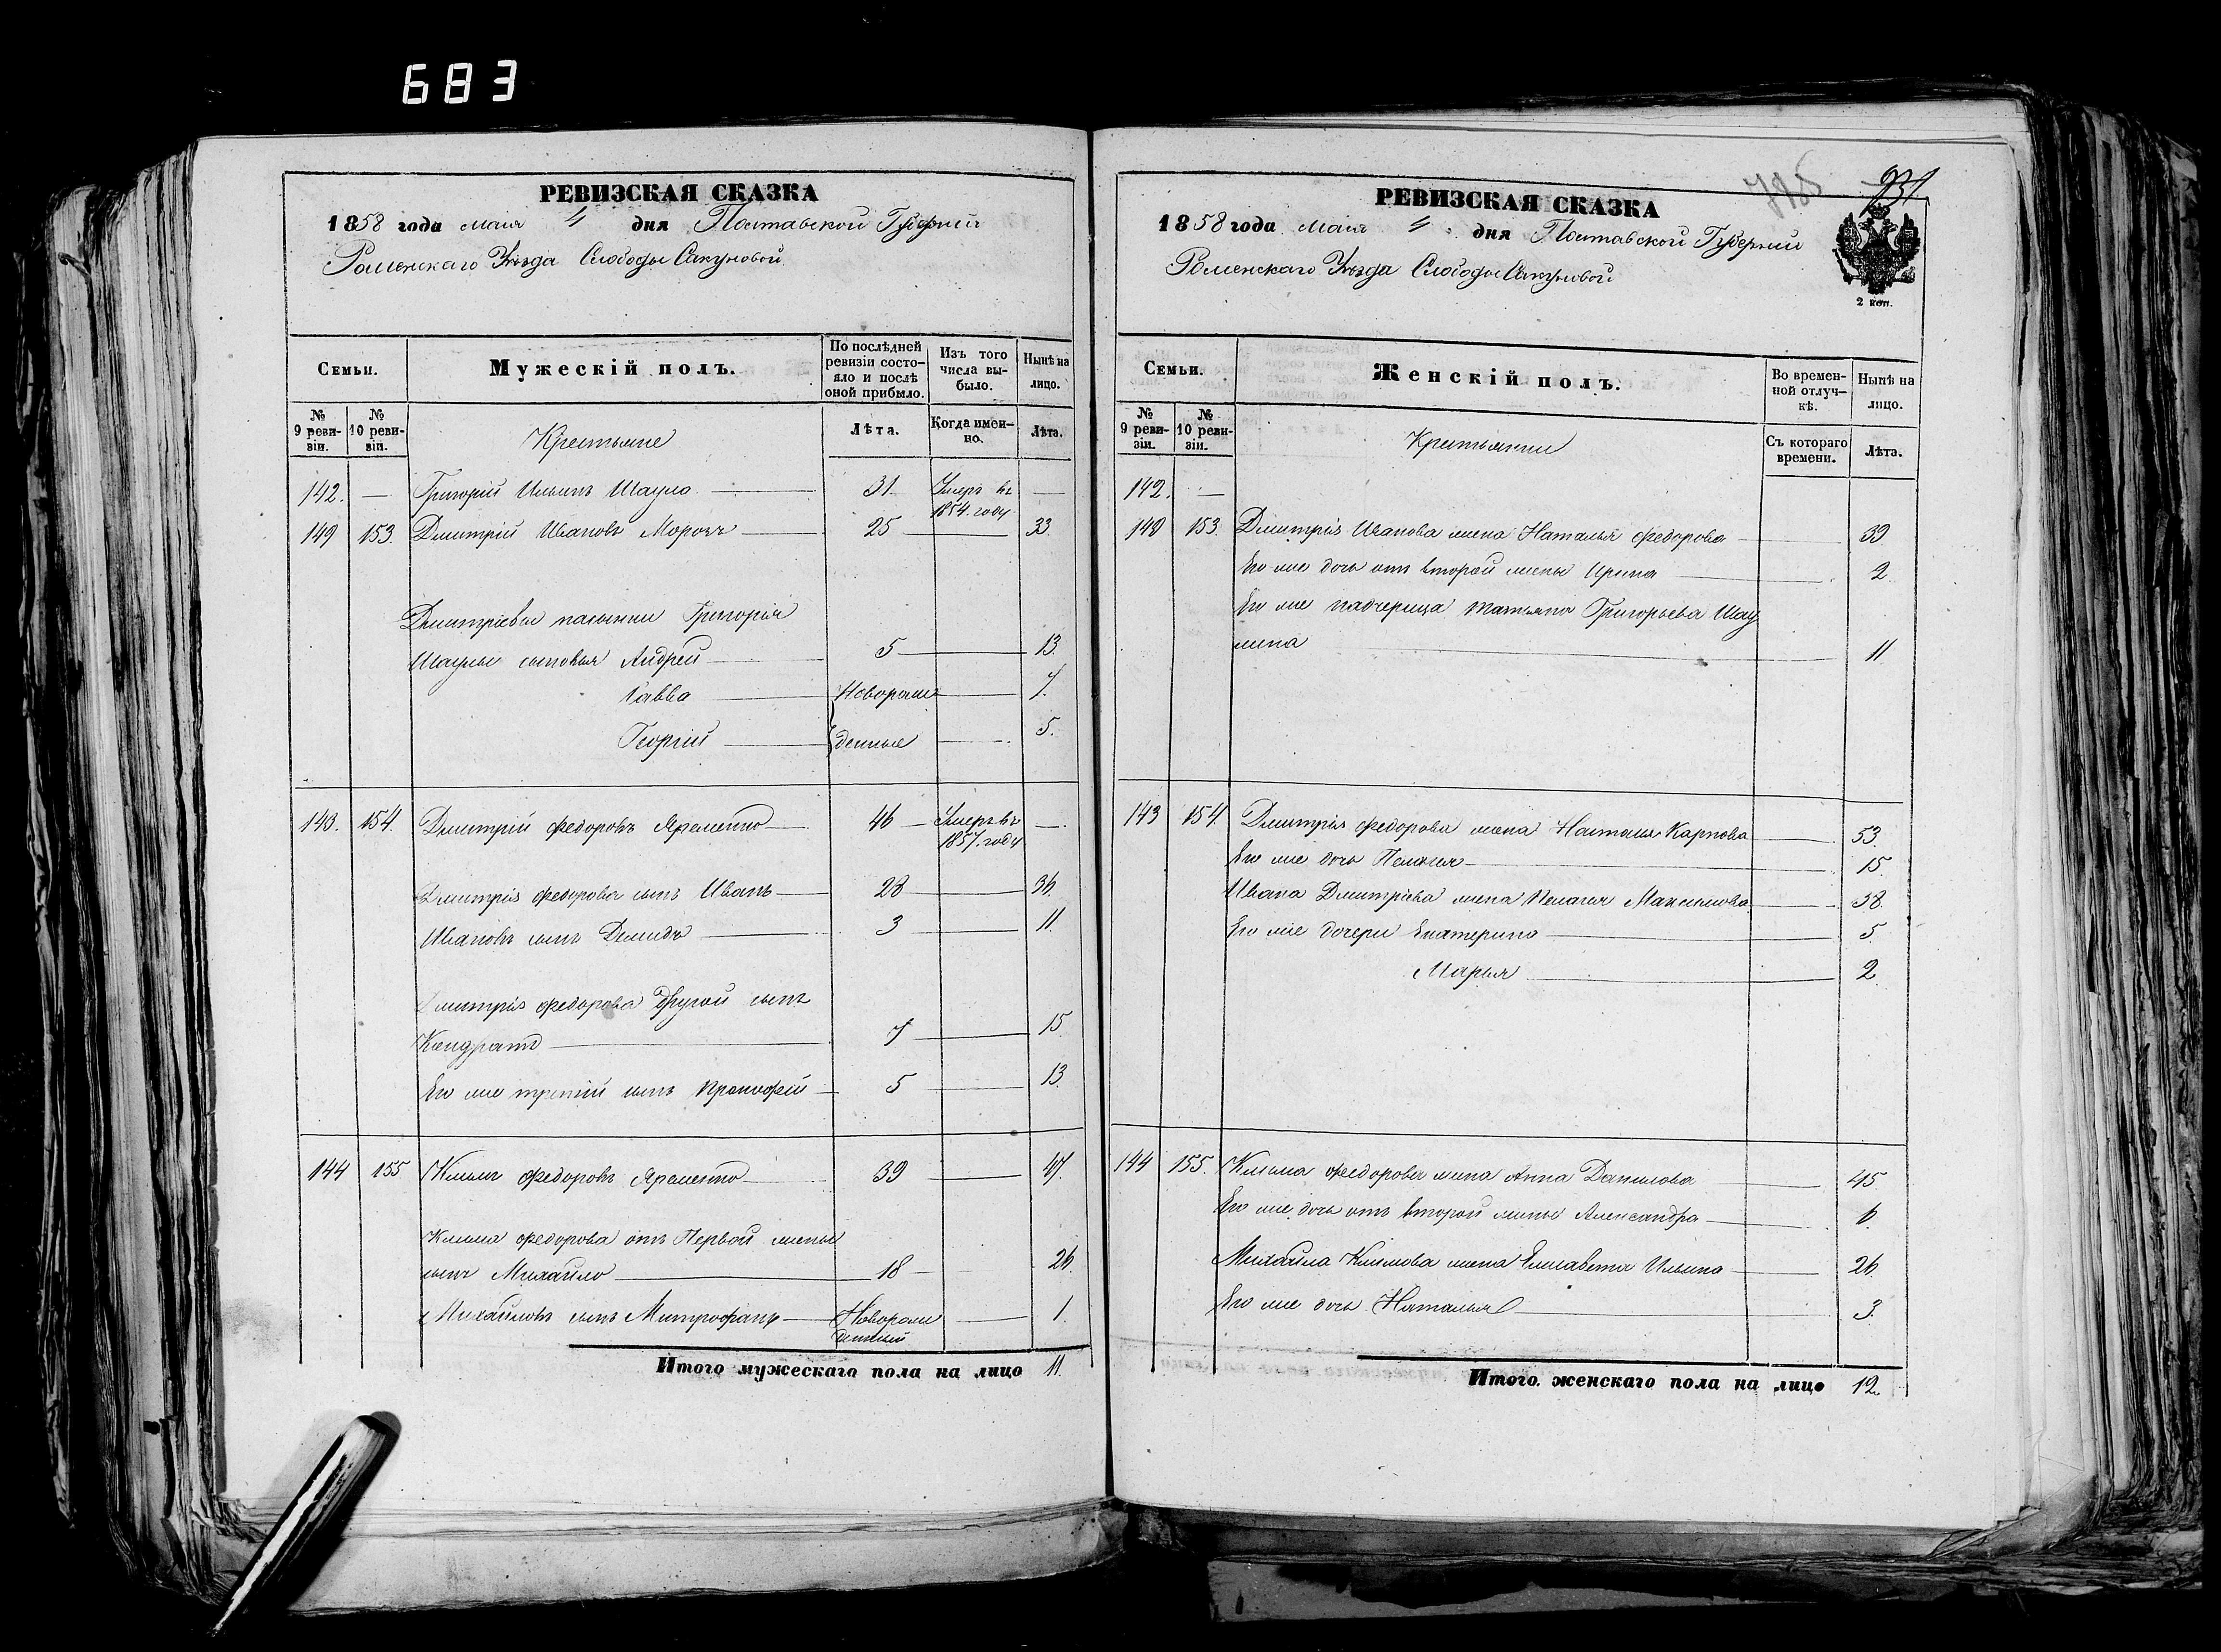 683
РЕВИЗСКАЯ СКАЗКА
1858 года мая 4 дня Полтавской Губерніи
Роменскаго Уѣзда Слободы Сакуновой
Семьи.
Мужескій полъ.
По послѣдней ревизіи состо-
яло и послѣ оной прибыло.
Изъ того числа вы-
было.
Нынѣ на лицо.
№ 9 реви-
зіи.
№ 10 реви-
зіи.
Крестьяне
Лѣта.
Когда имен-
но.
Лѣта.
142. — Григорій Ильинъ Шаула 31 Умеръ въ 1854. году —
149 153. Дмитрій Ивановъ Морозъ 25 — 33
Дмитріевы пасынки Григорія
Шаулы сыновья Андрей 5 — 13.
Савва Новорож 7.
Георгій денные 5.
143. 154. Дмитрій Федоровъ Яременко 46 Умеръ въ 1857. году —
Дмитрія Федорова сынъ Иванъ 28 — 36.
Ивановъ сынъ Демидъ 3 — 11.
Дмитрія Федорова другой сынъ
Кондратъ 7 — 15.
Его же третій сынъ Прокофей 5 — 13.
144 155 Климъ Федоровъ Яременко 39 — 47.
Клима Федорова отъ Первой жены
сынъ Михайло 18 26.
Михайловъ сынъ Митрофанъ Новорож
денный — 1.
Итого мужескаго пола на лицо 11.
785
РЕВИЗСКАЯ СКАЗКА
1858 года мая 4 дня Полтавской Губерніи
Роменскаго Уѣзда Слободы Сакуновой
2 коп.
Семьи.
Женскій полъ.
Во времен-
ной отлуч-
кѣ.
Нынѣ на лицо.
№ 9 реви-
зіи.
№ 10 реви-
зіи.
Крестьянки
Съ котораго времени.
Лѣта.
142. —
149 153. Дмитрія Иванова жена Наталья Федорова 39
Его же дочь отъ второй жены Ирина 2
Его же падчерица Татьяна Григорьева Шау
лина 11
143 154. Дмитрія Федорова жена Наталья Карпова 53.
Его же дочь Пелагея 15.
Ивана Дмитріева жена Пелагея Максимова 38.
Его же дочери Екатерина 5.
Марья 2.
144 155. Клима Федорова жена Анна Данилова 45.
Его же дочь отъ второй жены Александра 6.
Михайла Климова жена Елисавета Ильина 26.
Его же дочь Наталья 3.
Итого женскаго пола на лицо 12.